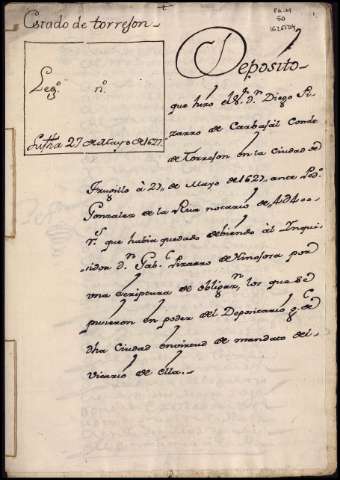 Estado de torreson
Leg.º n.º
Su fha 27 de Mayo de 1627.
Deposito
que hizo el S.r d.n Diego Pi
zarro de Carbajal Conde
de Torreson en la Ciudad de
Trugillo à 27, de Mayo de 1627. ante
Gonzalez de la Rua notario de
r.s que habia quedado debiendo àl Ynqui
sidor d.n Gab.l Pizarro de Hinosora por
una Scriptura de obligaz.n, los que se
pusieron en poder del Depositario g.l de
dha Ciudad en virtud de mandato del
Vicario de ella.